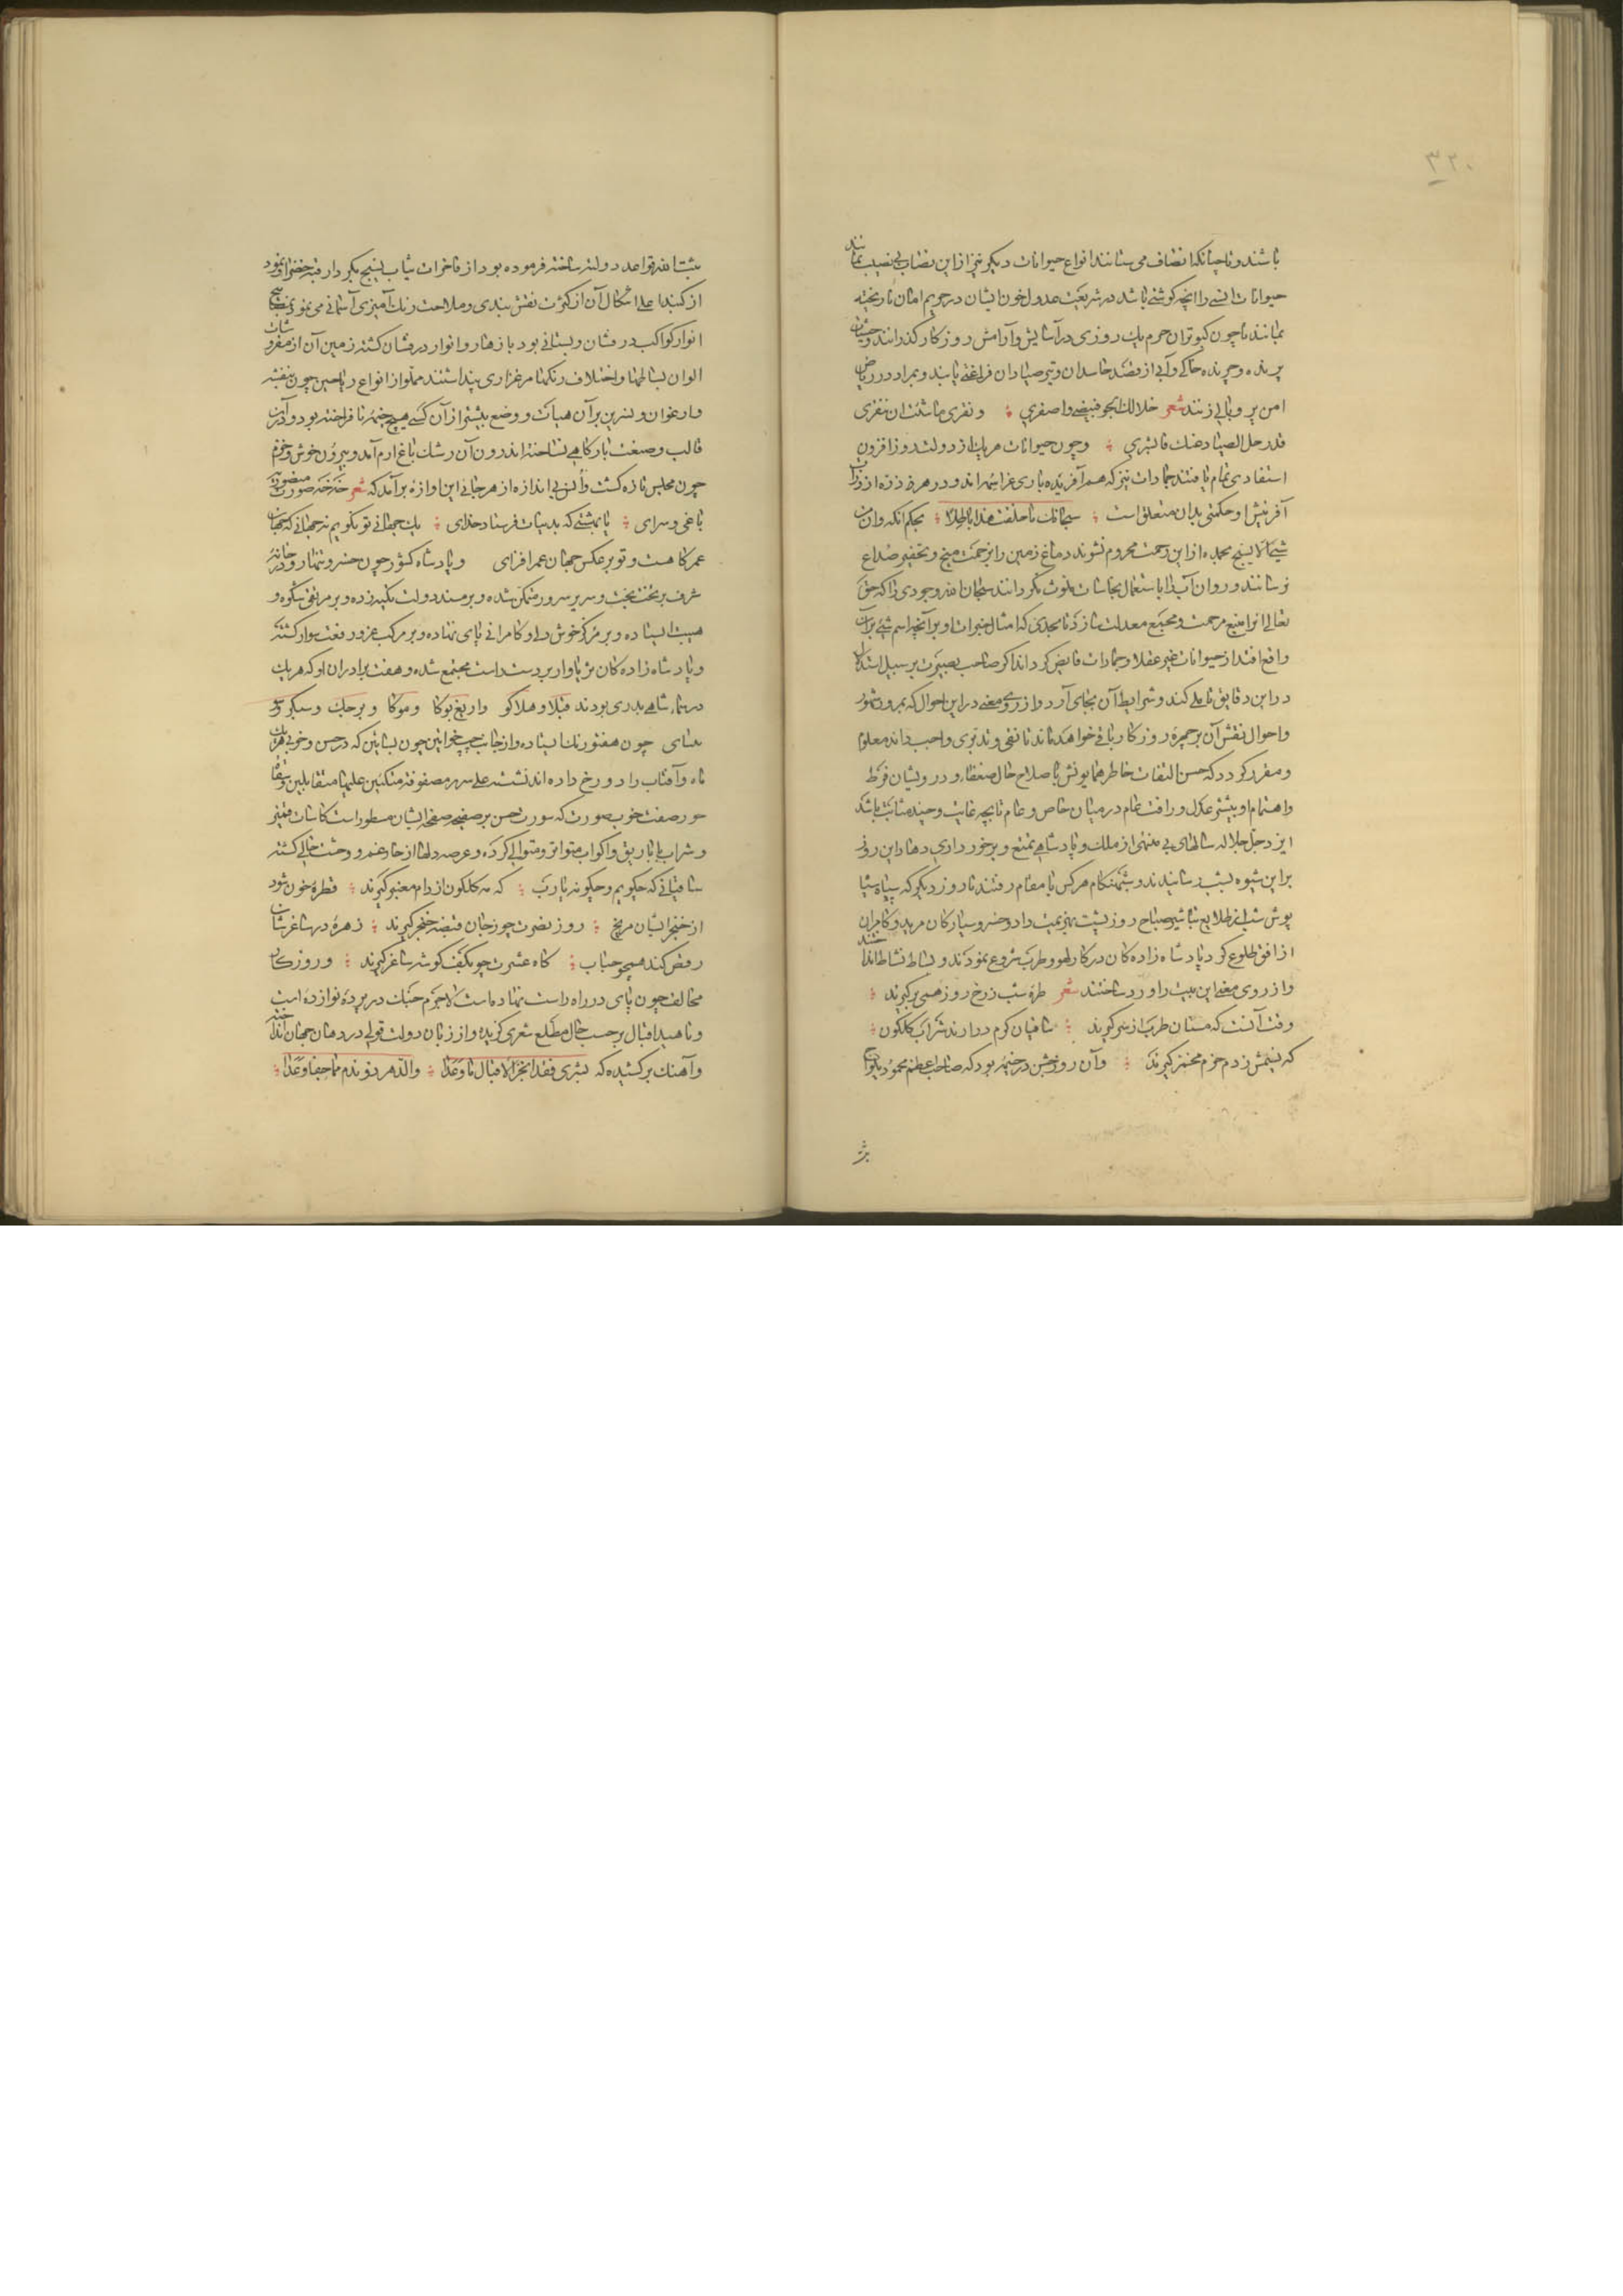 ۳۲۰
باشند و تا چنانکه انصاف می ستانند انواع حیوانات دیگر نیز از این نصاب بی نصیب نمانند
حیوانات انسی را آنچه گوشتی باشد در شریعت عدول خون ایشان در حریم امان نا ریخته
بمانند تا چون کبوتران حرم یک روزی در آسایش و آرامش روزگار گذرانند و وحشیان
پرنده و چرنده خاکی و آبی از قصد حاسدان و تیر صیادان فراغتی یابند و بمراد در ریاض
امن پر و بالی زنند شعر خلا لک الجو فبیضی و اصفری و نقری ما شئت ان تنقری
قد رحل الصیاد عنک فابشری و چون حیوانات هر یک از دولت روز افزون
استفادی تمام یافتند جمادات نیز که هم آفریده باری عز اسمه اند و در هر ذره از ذرات
آفرینش او حکمتی بدان متعلق است سبحانک ما خلقت هذا باطلا بحکم آنکه و ان من
شیء الا یسبح بحمده از این رحمت محروم نشوند دماغ زمین را بزحمت میخ و تحفیر صداع
نرسانند و روان آب را باستعمال نجاسات ملوث نگردانند سبحان الله وجودی را که حق
تعالی او را منبع مرحمت و مجمع معدلت سازد تا بحدی که امثال خیرات او بر آنچه اسم شیء بر آن
واقع افتد از حیوانات غیر عقلا و جمادات فایض گرداند اگر صاحب بصیرت بر سبیل استدلال
در این دقایق تاملی کند و شرایط آن بجای آرد و از روی معنی در این احوال که بمرور شهور
و احوال نقش آن بر چهره روزگار باقی خواهد ماند تانقی و تدبری واجب داند معلوم
و مقرر گردد که حسن التفات خاطر همایونش باصلاح حال ضعفاء و درویشان فرط
و اهتمام او بیشتر عدل و رافت تمام در میان خاص و عام تا بچه غایت و چند مثابت باشد
ایزد جل جلاله سالهای بی منتهی از ملک و پادشاهی تمتع و برخورداری دهاد این روز
بر این شیوه بشب رسانیدند و شبهنگام هر کس با مقام رفتند تا روز دیگر که سپاه سیاه
پوش شب از طلایع تباشیر صباح روز پشت بهزیمت داد و خسرو سیارگان مرید و کامران
از افق طلوع کرد پادشاه زادگان در کار لهو و طرب شروع نمودند و بساط نشاط انداختند
و از روی معنی این بیت را ورد ساختند شعر طره شب ز رخ روز همی برگیرند
وقت آنست که مستان طرب از سر گیرند ساقیان کرم در دارند شراب گلگون
که نسیمش ز دم خرم مخنبر گیرند و آن روز جشن در خیمه بود که صاحب اعظم محمود یلواج
ثبت الله قواعد دولته ساخته فرموده بود از فاخرات ثیاب نسیج بکردار قبه خضرا می نمود
از گنبد اعلا اشکال آن از کثرت نقش بندی و ملاحت رنگ آمیزی آسمانی می نمود بمصابیح
انوار کواکب درفشان و بستانی بود بازهار و انوار درفشان گشته زمین آن از مفروشات
الوان بساطها و اختلاف رنگها مرغزاری پنداشتند مملو از انواع ریاحین چون بنفشه
و ارغوان و نسرین بر آن هیات و وضع پیشتر از آن کسی هیچ خیمه نا فراخته بود و در آن
قالب و صفت بارگاهی نساخته اندرون آن رشک باغ ارم آمد و بیرون خوش و خرم
چون مجلس تازه گشت و انس بی اندازه از هر جانبی این اوازه بر آمد که شعر
باغی و سرای یا بهشتی که بدینات فرستاد خدای یک جهانی تو نگویم نه جهانی که جهان
عمر کاهست و تو بر عکس جهان عمر افزای و پادشاه کشور چون خسرو تنها رو در خانه
شرف بر تخت بخت و سریر سرور متمکن شده و بر مسند دولت تکیه زده و بر مرتقی شکوه و
هیبت ایستاده و بر مرکز خوش دلی و کامرانی پای نهاده و بر مرکب عز و رفعت سوار گشته
و پادشاه زادگان ثریاوار بر دست راست مجتمع شده و هفت برادران او که هر یک
در سماء شاهی بدری بودند قبلا و هلاکو و اریغ بوکا و موکا و بوجک و سبکو و
بسای چون هفتورنگ ایستاده و از جانب چپ خواتین چون بساتین که در حسن و خوبی هر یک
ماه و آفتاب را دو رخ داده اند نشسته علی سرر مصفوفة متکئین علیها متقابلین و سقاة
حور صفت خوب صورت که سورت حسن بر صفحه صفحه ایشان مسطور است کاسات قمیز
و شراب باباریق و اکواب متواتر و متوالی کرده و عرصه دلها از خار غم و وحشت خالی گشته
ساقیانی که چگویم و چگونه یارب که می گلگون از دام معنبر گیرند قطره خون شود
از خنجر ایشان مریخ روز نصرت چو ز جان قبضه خنجر گیرند زهره در ساغرشان
رقص کند همچو حباب گاه عشرت چو بکف گوشه ساغر گیرند و روزگار
مخالف چون پای در راه راست نهاده است لاجرم چنگ در پرده نوا زده است
و ناهید اقبال بر حسب حال مطلع شعری گزیده و از زبان دولت قولی در دهان جهان انداخته
و آهنگ بر کشیده که بشری فقد انجز الاقبال ما وعدا والدهر ذو ندم مما جفا وعدا